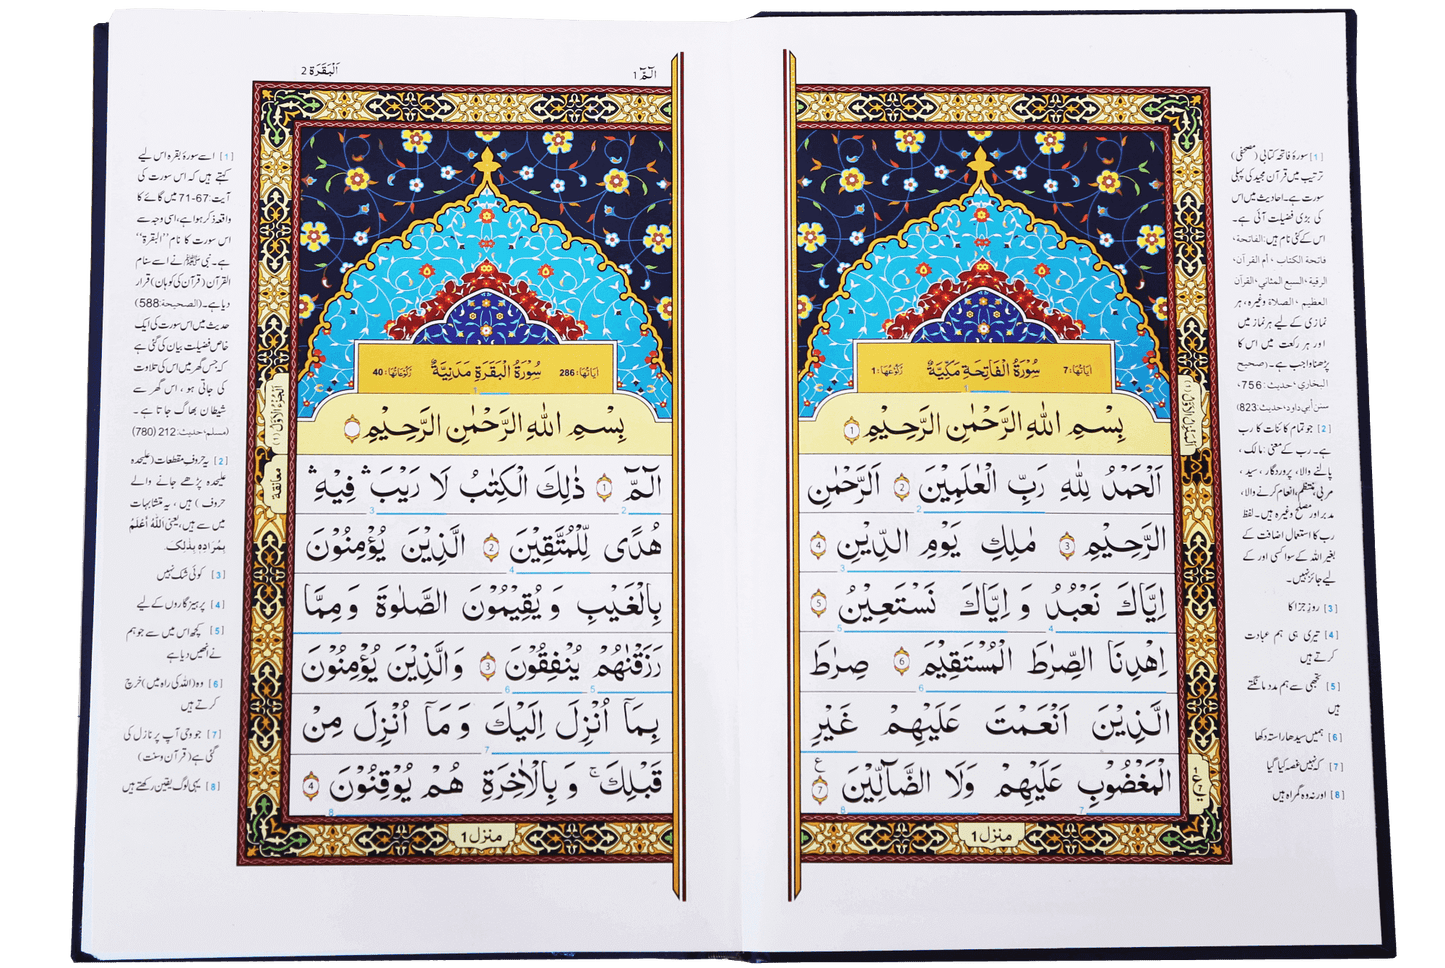 سُوْرَةُ الْفَاتِحَةِ مَكِّيَّةٌ
اٰيَاتُهَا: 7
رُكُوْعُهَا: 1
بِسْمِ اللّٰهِ الرَّحْمٰنِ الرَّحِيْمِ 1
اَلْحَمْدُ لِلّٰهِ رَبِّ الْعٰلَمِيْنَ 2 الرَّحْمٰنِ
الرَّحِيْمِ 3 مٰلِكِ يَوْمِ الدِّيْنِ 4
اِيَّاكَ نَعْبُدُ وَ اِيَّاكَ نَسْتَعِيْنُ 5
اِهْدِنَا الصِّرَاطَ الْمُسْتَقِيْمَ 6 صِرَاطَ
الَّذِيْنَ اَنْعَمْتَ عَلَيْهِمْ غَيْرِ
الْمَغْضُوْبِ عَلَيْهِمْ وَلَا الضَّآلِّيْنَ 7
منزل 1
[1] سورۂ فاتحہ کتابی (مصحفی)
ترتیب میں قرآن مجید کی پہلی
سورت ہے۔ احادیث میں اس
کی بڑی فضیلت آئی ہے۔
اس کے کئی نام ہیں: الفاتحة،
فاتحة الكتاب، أم القرآن،
الرقية، السبع المثاني، القرآن
العظيم، الصلاة وغیرہ، ہر
نمازی کے لیے ہر نماز میں
اور ہر رکعت میں اس کا
پڑھنا واجب ہے۔ (صحيح
البخاري، حديث: 756،
سنن أبي داود، حديث: 823)
[2] جو تمام کائنات کا رب
ہے۔ رب کے معنی: مالک،
پالنے والا، پروردگار، سید،
مربی، منتظم، انعام کرنے والا،
مدبر اور مصلح وغیرہ ہیں۔ لفظ
رب کا استعمال اضافت کے
بغیر اللہ کے سوا کسی اور کے
لیے جائز نہیں۔
[3] روزِ جزا کا
[4] تیری ہی ہم عبادت
کرتے ہیں
[5] تجھی سے ہم مدد مانگتے
ہیں
[6] ہمیں سیدھا راستہ دکھا
[7] کہ نہیں غصہ کیا گیا
[8] اور نہ وہ گمراہ ہیں
الٓمّٓ 1
اَلْبَقَرَة 2
سُوْرَةُ الْبَقَرَةِ مَدَنِيَّةٌ
اٰيَاتُهَا: 286
رُكُوْعَاتُهَا: 40
بِسْمِ اللّٰهِ الرَّحْمٰنِ الرَّحِيْمِ
الٓمّٓ 1 ذٰلِكَ الْكِتٰبُ لَا رَيْبَ ۛ فِيْهِ ۛ
هُدًى لِّلْمُتَّقِيْنَ 2 الَّذِيْنَ يُؤْمِنُوْنَ
بِالْغَيْبِ وَ يُقِيْمُوْنَ الصَّلٰوةَ وَ مِمَّا
رَزَقْنٰهُمْ يُنْفِقُوْنَ 3 وَ الَّذِيْنَ يُؤْمِنُوْنَ
بِمَآ اُنْزِلَ اِلَيْكَ وَ مَآ اُنْزِلَ مِنْ
قَبْلِكَ ۚ وَ بِالْاٰخِرَةِ هُمْ يُوْقِنُوْنَ 4
منزل 1
اَلْجُزْءُ الْاَوَّلُ (1)
معانقة
[1] اسے سورۂ بقرہ اس لیے
کہتے ہیں کہ اس سورت کی
آیت: 67-71 میں گائے کا
واقعہ ذکر ہوا ہے، اسی وجہ سے
اس سورت کا نام ''البقرة''
ہے۔ نبی ﷺ نے اسے سنام
القرآن (قرآن کی کوہان) قرار
دیا ہے۔ (الصحيحة: 588)
حدیث میں اس سورت کی ایک
خاص فضیلت بیان کی گئی ہے
کہ جس گھر میں اس کی تلاوت
کی جاتی ہو، اس گھر سے
شیطان بھاگ جاتا ہے۔
(مسلم، حديث: 212 (780)
[2] یہ حروف مقطعات (علیحدہ
علیحدہ پڑھے جانے والے
حروف) ہیں، یہ متشابہات
میں سے ہیں، یعنی اَللّٰهُ اَعْلَمُ
بِمُرَادِهِ بِذٰلِكَ.
[3] کوئی شک نہیں
[4] پرہیزگاروں کے لیے
[5] کچھ اس میں سے جو ہم
نے انھیں دیا ہے
[6] وہ (اللہ کی راہ میں) خرچ
کرتے ہیں
[7] جو وحی آپ پر نازل کی
گئی ہے (قرآن و سنت)
[8] یہی لوگ یقین رکھتے ہیں